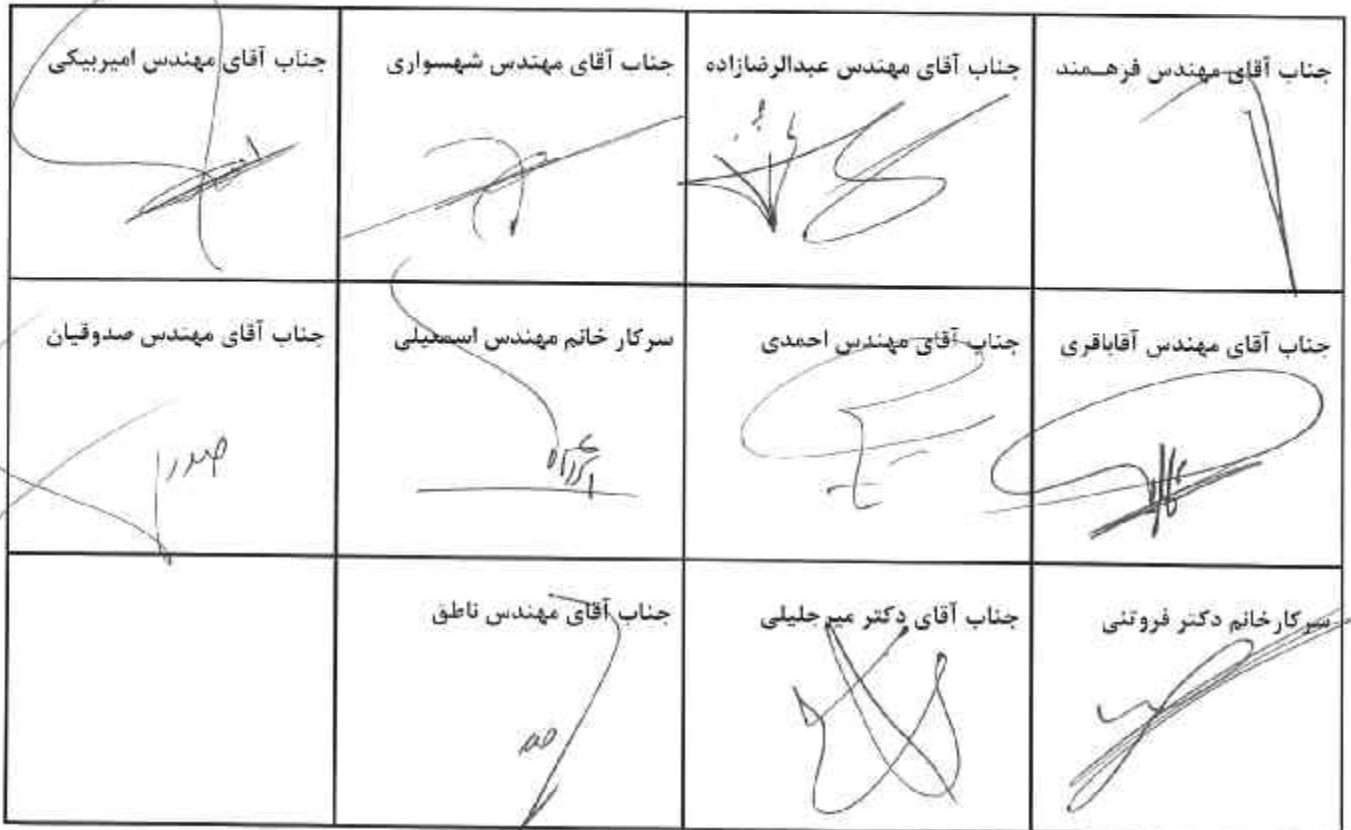 جناب آقای مهندس فرهـمند
جناب آقای مهندس عبدالرضازاده
جناب آقای مهندس شهسواری
جناب آقای مهندس امیربیکی
جناب آقای مهندس آقاباقری
جناب آقای مهندس احمدی
سرکار خانم مهندس اسمعیلی
جناب آقای مهندس صدوقیان
سرکارخانم دکتر فروتنی
جناب آقای دکتر میرجلیلی
جناب آقای مهندس ناطق